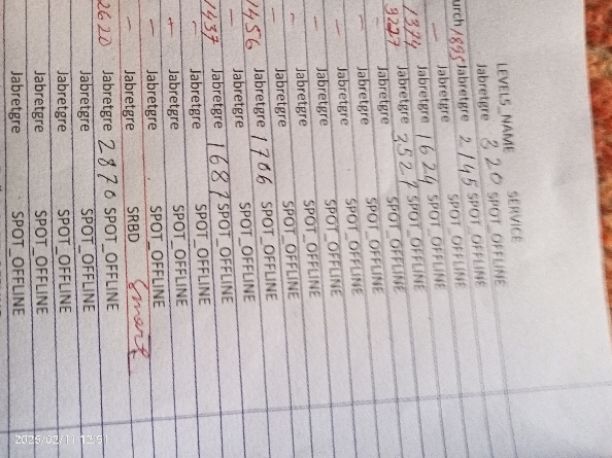 LEVELS_NAME SERVICE
Jabretgre 320 SPOT_OFFLINE
urch 1895 Jabretgre 2145 SPOT_OFFLINE
– Jabretgre SPOT_OFFLINE
1374 Jabretgre 1624 SPOT_OFFLINE
3227 Jabretgre 3527 SPOT_OFFLINE
– Jabretgre SPOT_OFFLINE
– Jabretgre SPOT_OFFLINE
– Jabretgre SPOT_OFFLINE
– Jabretgre SPOT_OFFLINE
– Jabretgre SPOT_OFFLINE
– Jabretgre SPOT_OFFLINE
1456 Jabretgre 1706 SPOT_OFFLINE
– Jabretgre SPOT_OFFLINE
1437 Jabretgre 1687 SPOT_OFFLINE
– Jabretgre SPOT_OFFLINE
– Jabretgre SPOT_OFFLINE
– Jabretgre SPOT_OFFLINE
– Jabretgre SRBD Smart
2620 Jabretgre 2870 SPOT_OFFLINE
Jabretgre SPOT_OFFLINE
Jabretgre SPOT_OFFLINE
Jabretgre SPOT_OFFLINE
Jabretgre SPOT_OFFLINE